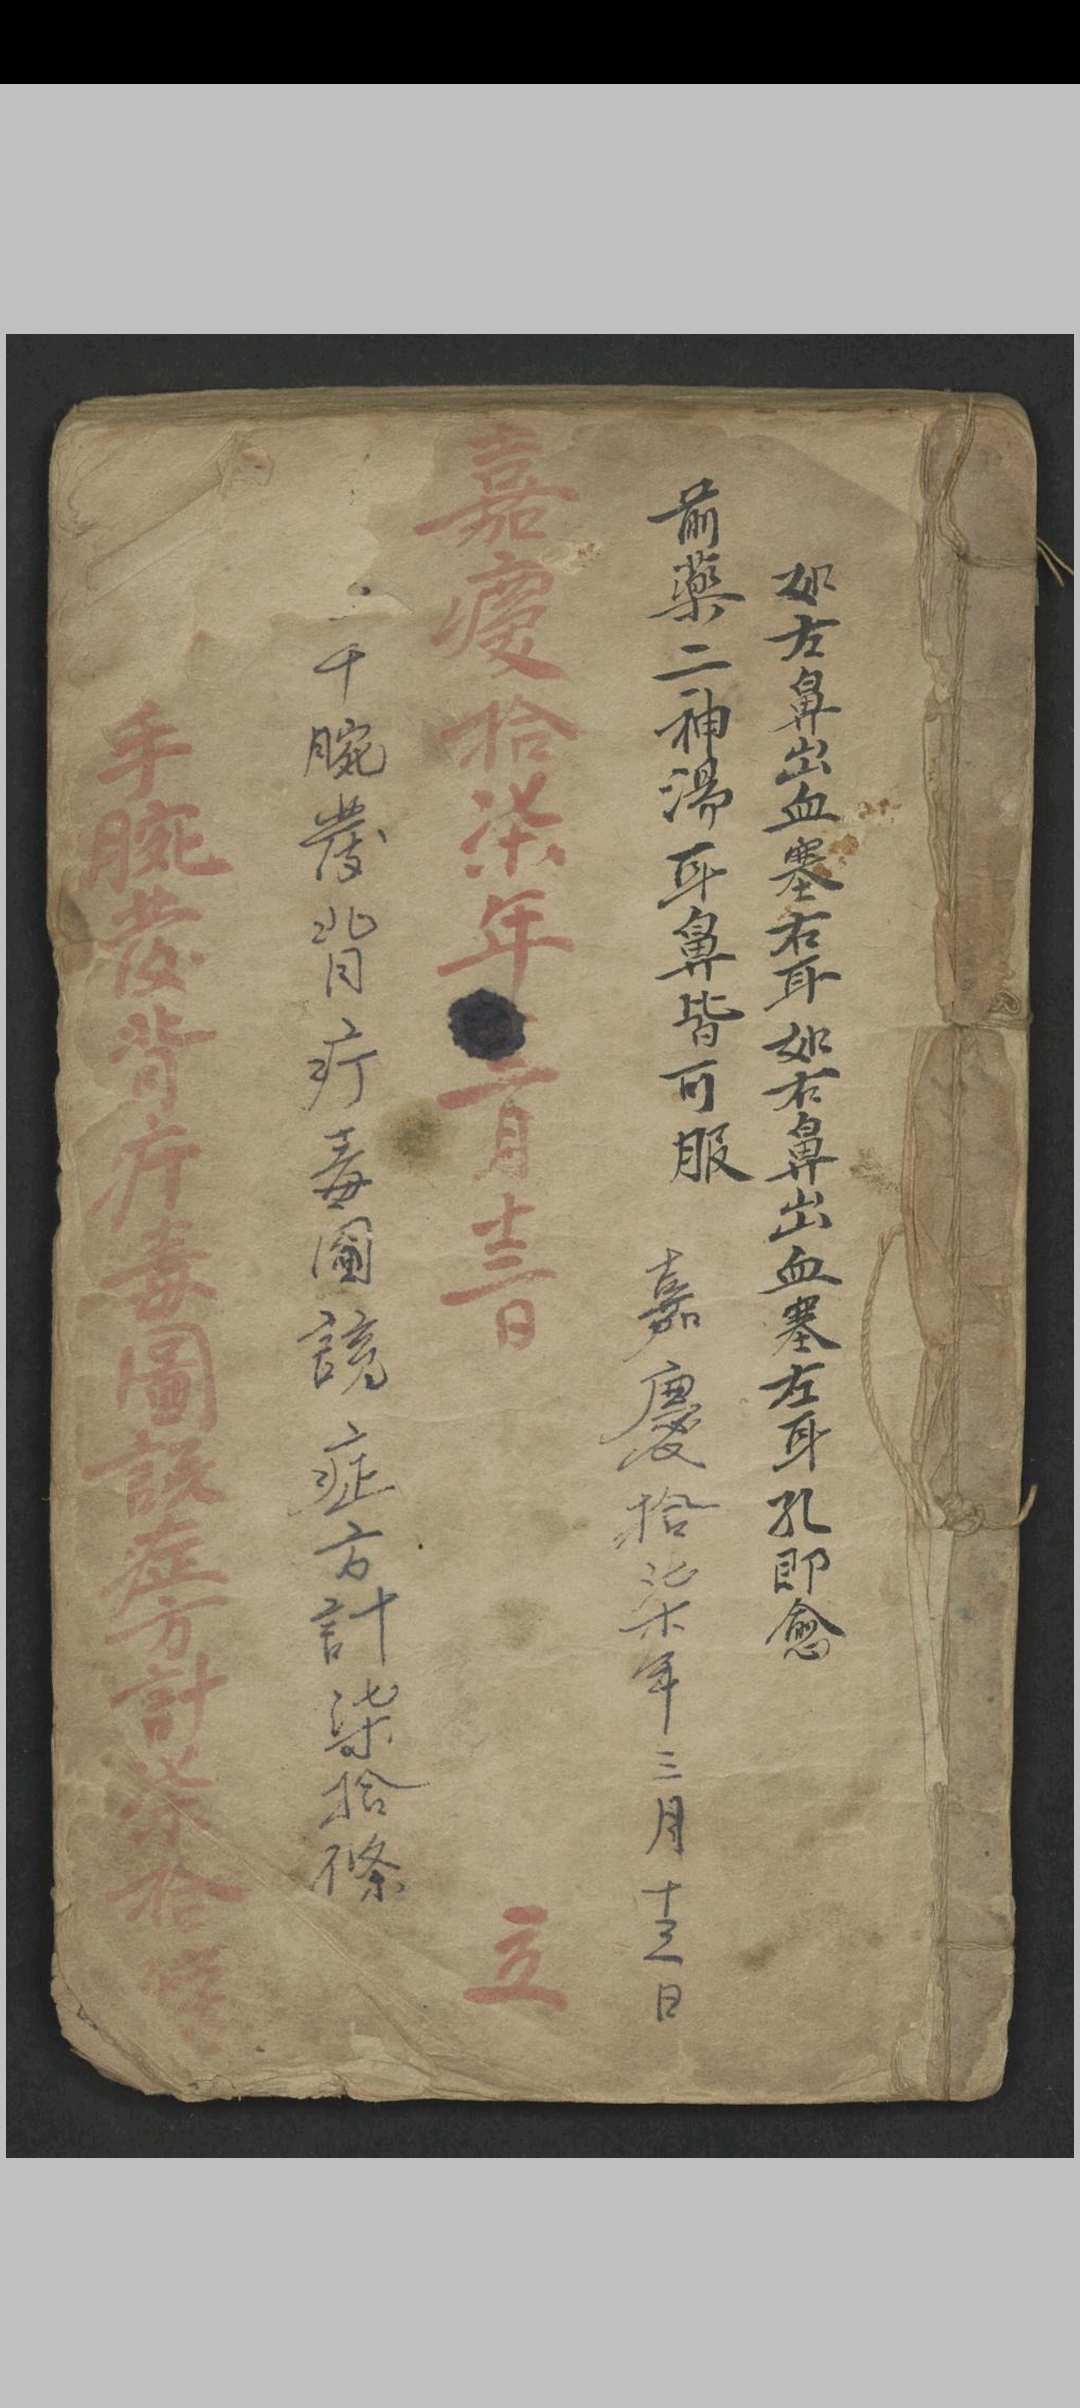 如左鼻出血塞右耳如右鼻出血塞左耳孔即愈
前藥二神湯耳鼻皆可服
嘉慶拾柒年三月十三日
嘉慶拾柒年三月十三日 立
手腕發背疔毒圖説症方計柒拾條
手腕發背疔毒圖説症方計柒拾